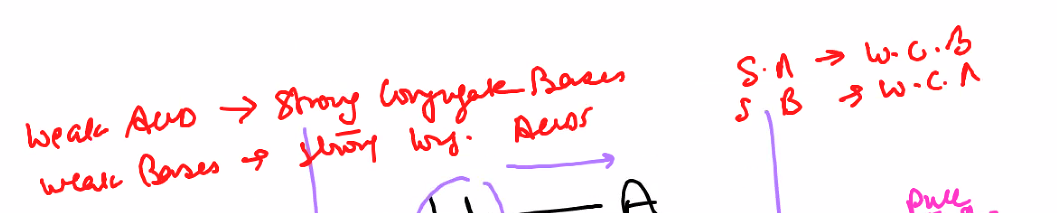 Weak Acid → Strong Conjugate Bases
Weak Bases → Strong Conj. Acids
S.A → W.C.B
S B → W.C.A
H — A
Pull